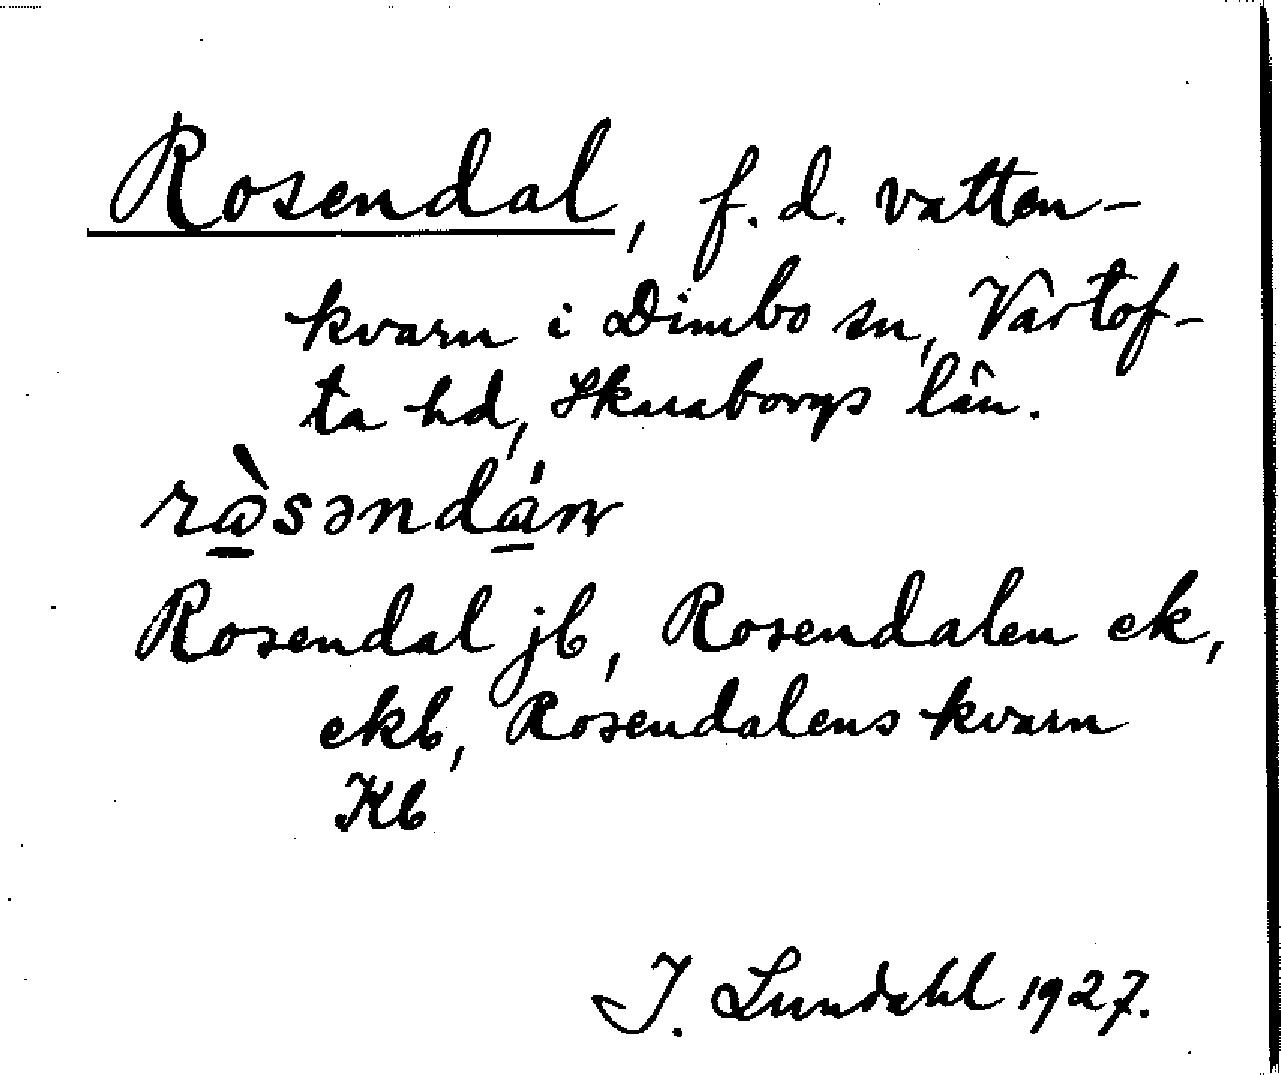 Rosendal, f. d. vatten-
kvarn i Dimbo sn, Vartof-
ta hd, Skaraborgs län.
Rosendal jb, Rosendalen ek,
ekb, Rosendalens kvarn
Kb
I. Lundahl 1927.